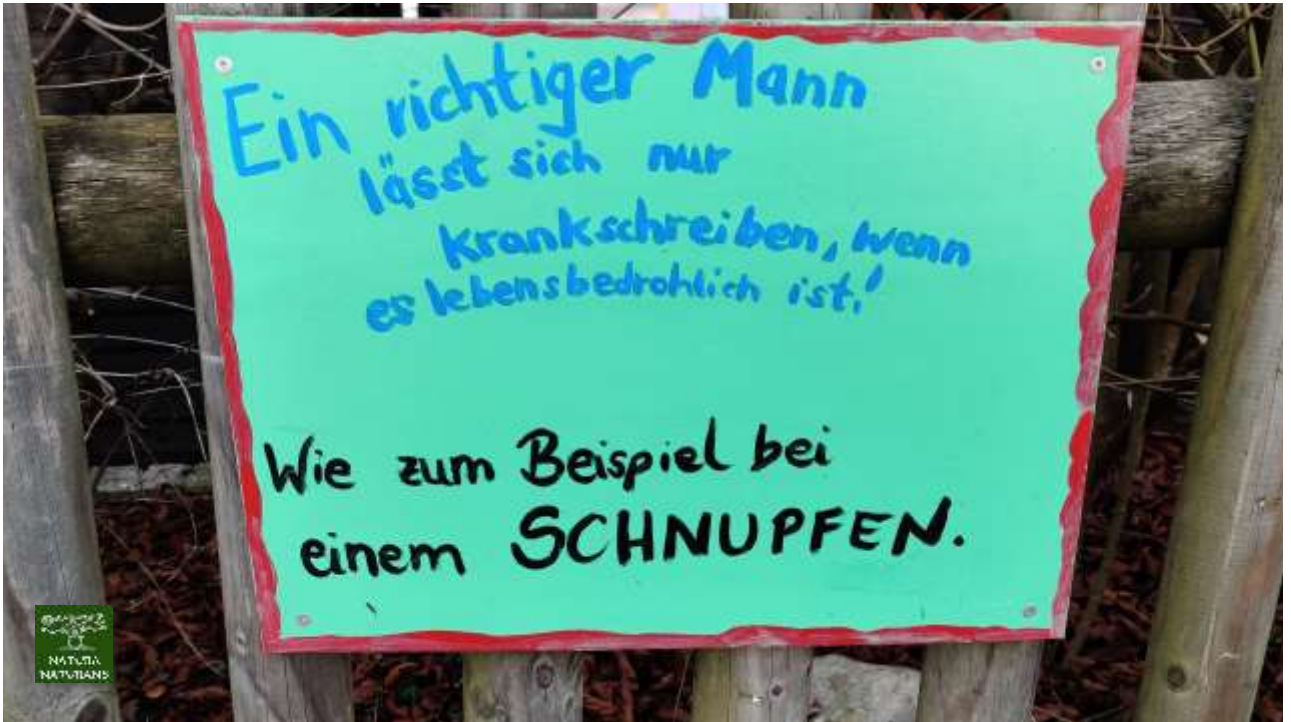 Ein richtiger Mann
lässt sich nur
krankschreiben, wenn
es lebensbedrohlich ist!
Wie zum Beispiel bei
einem SCHNUPFEN.
NATURA
NATURANS